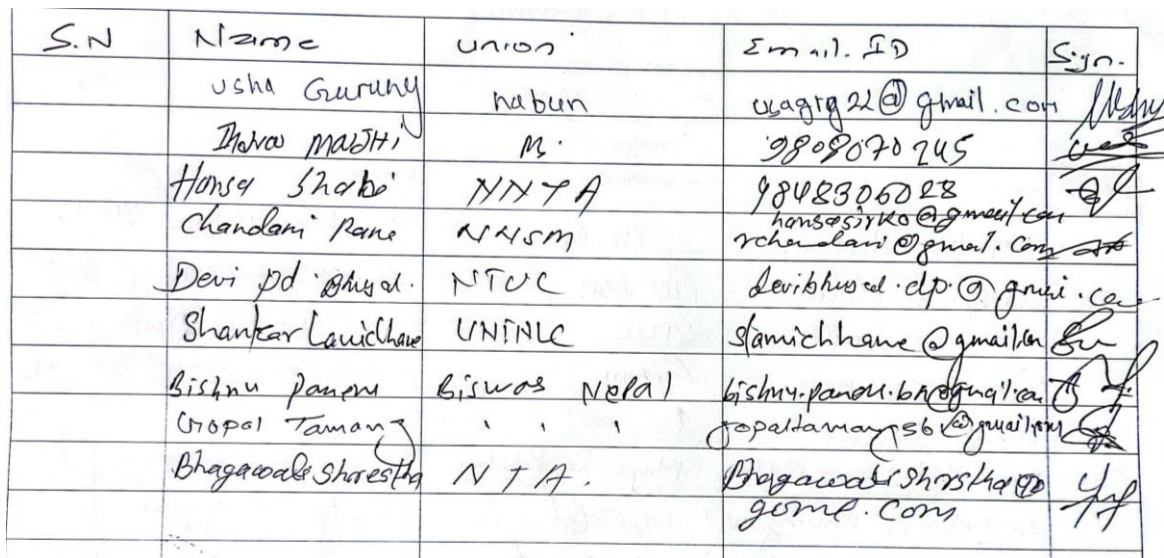 S.N Name Union Email. ID Sign.
Usha Gurung nabun usagrg22@gmail.com
MAJHI M. 9808070245
Hansa Shahi NNTA 9848306028
hansasirko@gmail.com
Chandani Rana NNSM rchandani@gmail.com
Devi Pd Bhusal. NTUC devibhusal.dp.@gmai.com
Shankar Lamichhane UNINLC slamichhane@gmail.com
Bishnu Paneru Biswas Nepal bishnu.paneru.bn@gmail.com
Gopal Tamang " " " gopaltamang56@gmail.com
Bhagawati Shrestha NTA. Bhagawatishrstha@
gome.com